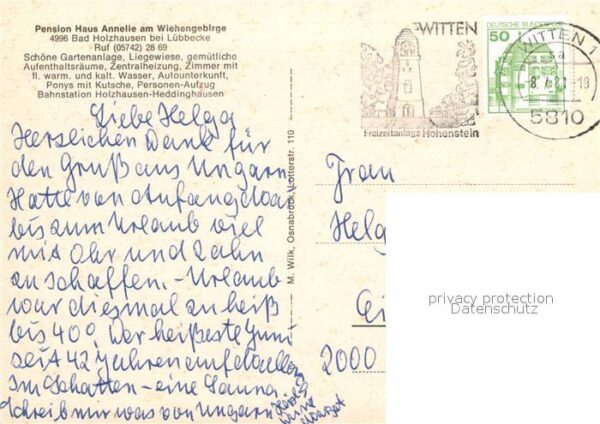 Pension Haus Annelie am Wiehengebirge
4996 Bad Holzhausen bei Lübbecke
Ruf (05742) 28 69
Schöne Gartenanlage, Liegewiese, gemütliche
Aufenthaltsräume, Zentralheizung, Zimmer mit
fl. warm. und kalt. Wasser, Autounterkunft,
Ponys mit Kutsche, Personen-Aufzug
Bahnstation Holzhausen-Heddinghausen
Liebe Helga
Herzlichen Dank für
den Gruß aus Ungarn
Hatte von Anfang
bis zum Urlaub viel
mit Ohr und Zahn
zu schaffen. - Urlaub
war diesmal zu heiß
bis 40°. Der heißeste Juni
seit 42 Jahren auf
Im Schatten - eine Sauna.
Schreib mir was von Ungarn
Margot
M. Wilk, Osnabrück, Lotterstr. 110
WITTEN
Freizeitanlage Hohenstein
50
DEUTSCHE BUNDESPOST
WITTEN 1
a
-19
5810
Frau
Helga
2000
privacy protection
Datenschutz